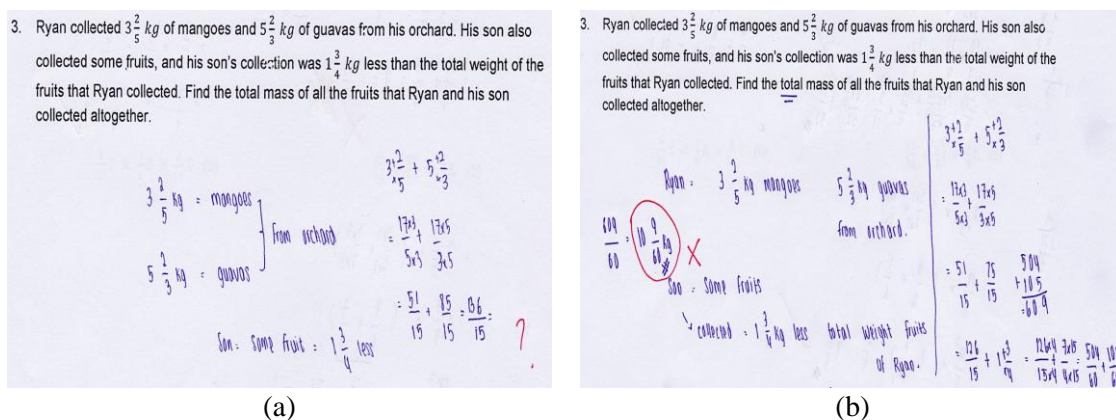 3. Ryan collected 3 2/5 kg of mangoes and 5 2/3 kg of guavas from his orchard. His son also
collected some fruits, and his son's collection was 1 3/4 kg less than the total weight of the
fruits that Ryan collected. Find the total mass of all the fruits that Ryan and his son
collected altogether.
3 +2/×5 + 5 +2/×3
3 2/5 kg = mangoes
from orchard
5 2/3 kg = guavas
= 17×3/5×3 + 17×5/3×5
= 51/15 + 85/15 = 136/15 =
Son = some fruit = 1 3/4 less
?
(a)
3. Ryan collected 3 2/5 kg of mangoes and 5 2/3 kg of guavas from his orchard. His son also
collected some fruits, and his son's collection was 1 3/4 kg less than the total weight of the
fruits that Ryan collected. Find the total mass of all the fruits that Ryan and his son
collected altogether.
Ryan = 3 2/5 kg mangoes 5 2/3 kg guavas
from orchard.
609/60 = 10 9/60 kg
Son = some fruits
collected = 1 3/4 kg less total weight fruits
of Ryan.
3 +2/×5 + 5 +2/×3
= 17×3/5×3 + 17×5/3×5
= 51/15 + 75/15
504
+105
=609
= 126/15 + 1 +3/×4 = 126×4/15×4 + 7×15/4×15 = 504/60 + 10
(b)